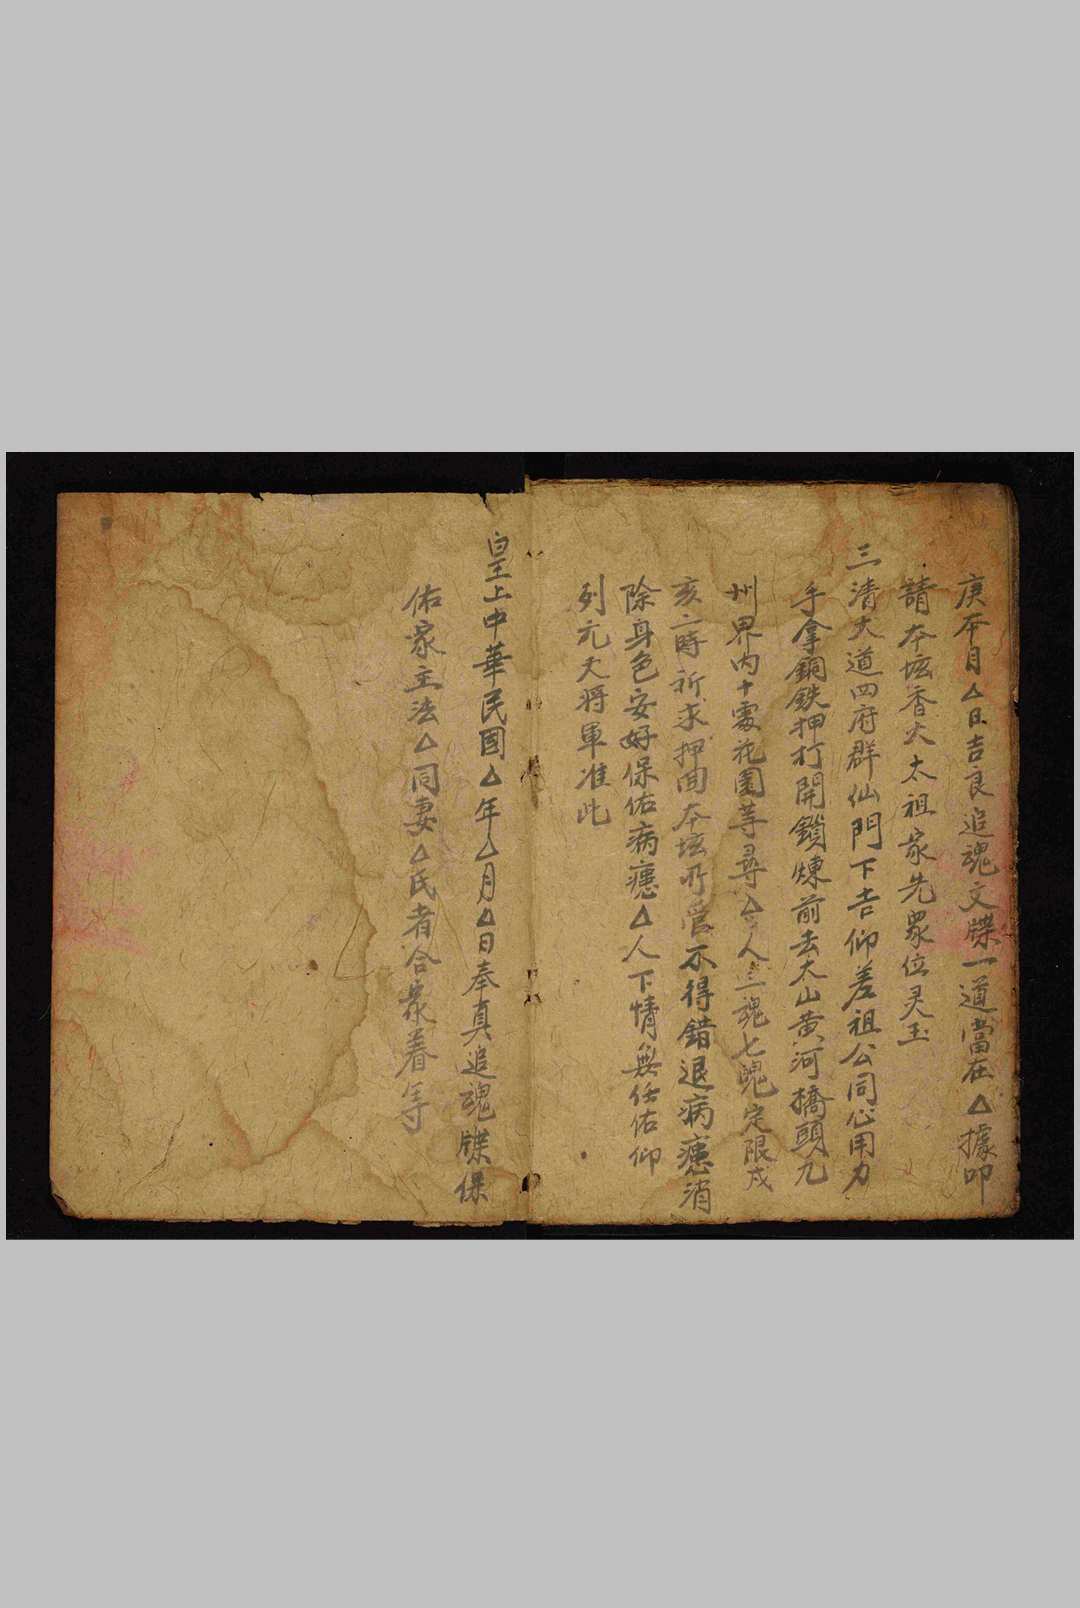 庚本月△日吉良追魂文牒一道當在△據叩
請本坛香火太祖家先眾位灵玉
三清大道四府群仙門下吉仰差祖公同心用力
手拿銅鉄押打開鎖煉前去太山黄河橋頭九
州界内十處花園等尋△人三魂七魄定限戌
亥二時祈求押回本坛所管不得錯退病患消
除身色安好保佑病患△人下情無任佑仰
列元大将軍准此
皇上中華民國△年△月△日奉真追魂牒保
佑家主法△同妻△氏者合家眷等